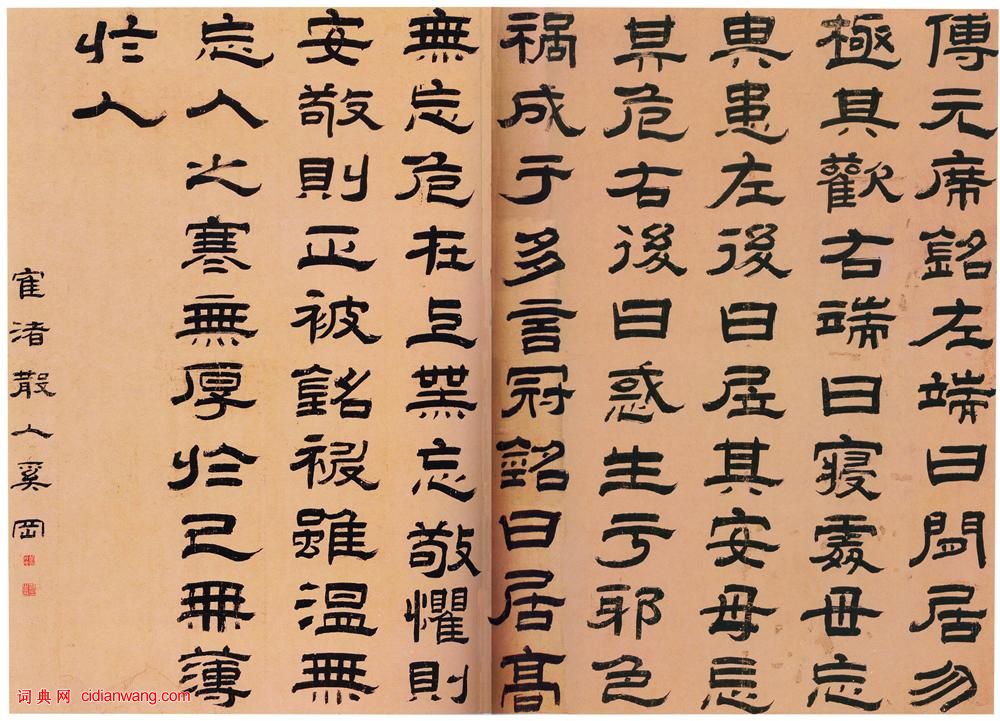 傅元席銘左端曰閒居勿
極其歡右端曰寢處毋忘
其患左後曰居其安毋忘
其危右後曰惑生于邪色
禍成于多言冠銘曰居高
無忘危在上無忘敬懼則
安敬則正被銘被雖温無
忘人之寒無厚於己無薄
於人
寉渚散人奚岡
词典网 cidianwang.com